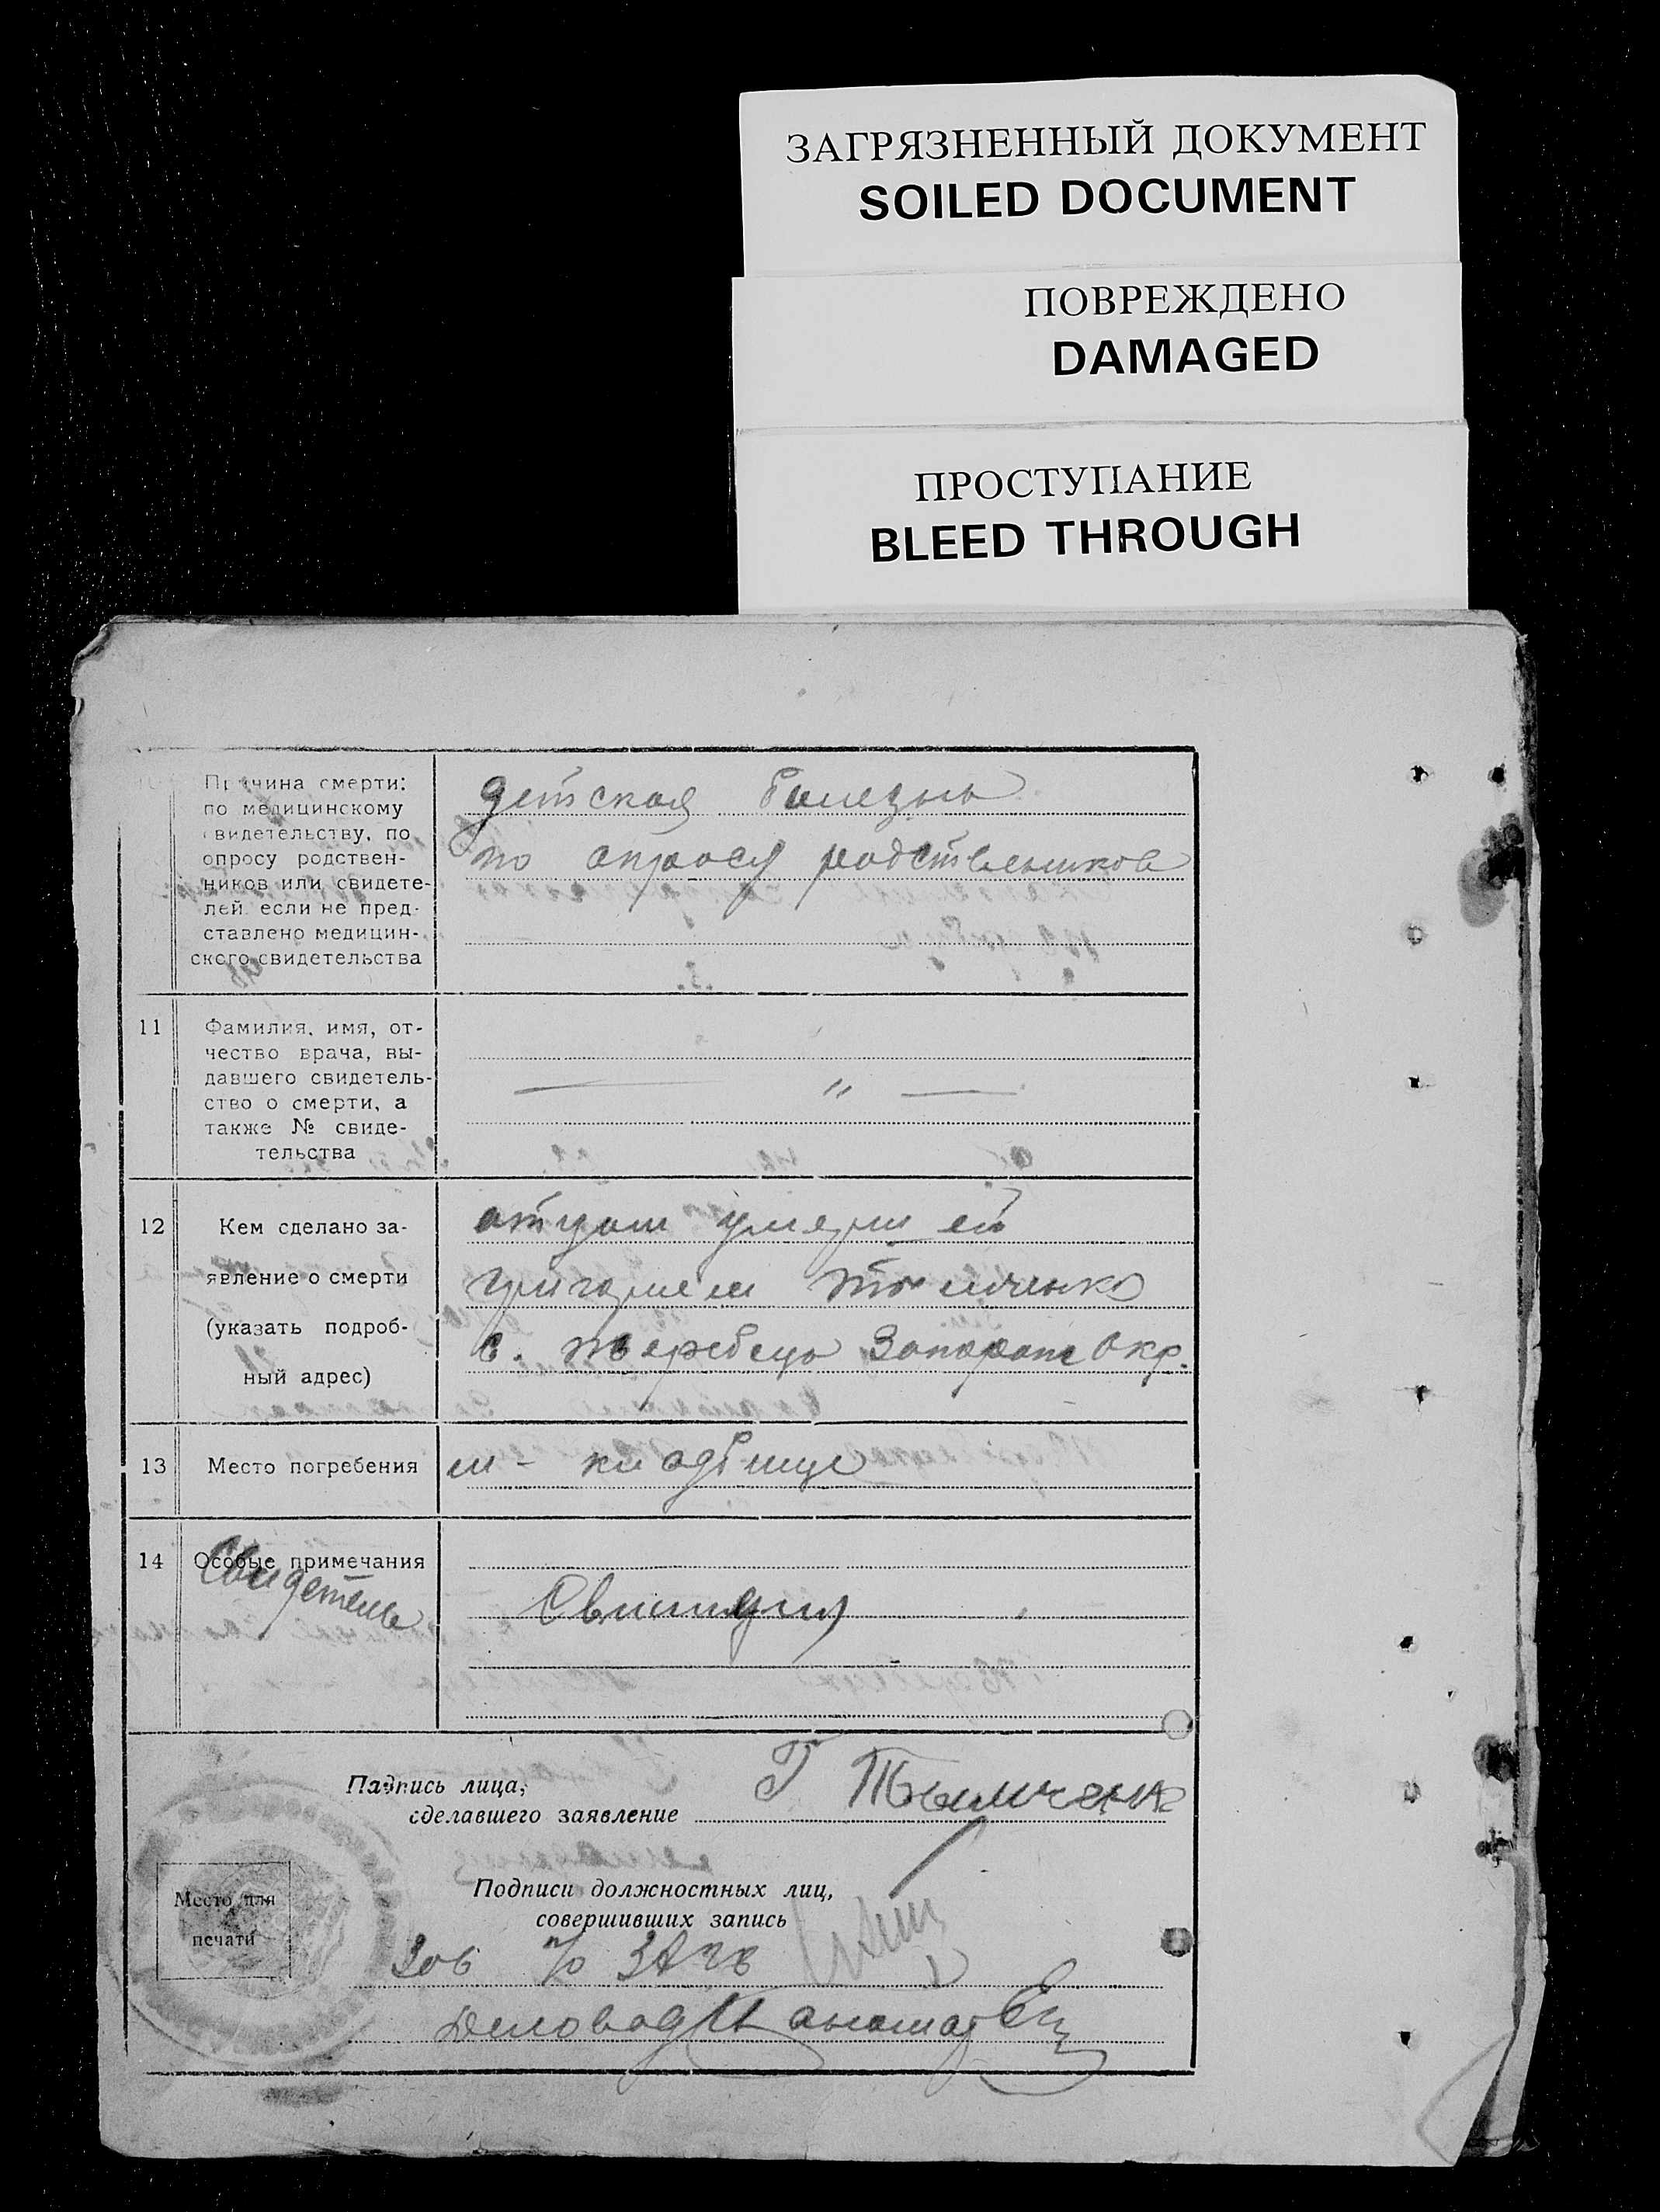 ЗАГРЯЗНЕННЫЙ ДОКУМЕНТ
SOILED DOCUMENT
ПОВРЕЖДЕНО
DAMAGED
ПРОСТУПАНИЕ
BLEED THROUGH
Причина смерти:
по медицинскому
свидетельству, по
опросу родствен-
ников или свидете-
лей если не пред-
ставлено медицин-
ского свидетельства
детская болезнь
по опросу родственников
11
Фамилия, имя, от-
чество врача, вы-
давшего свидетель-
ство о смерти, а
также № свиде-
тельства
— „ —
12
Кем сделано за-
явление о смерти
(указать подроб-
ный адрес)
отцом умершей
Григорием
с. Жеребець Запорож Окр.
13
Место погребения
кладбище
14
Особые примечания
Свидетель
Подпись лица,
сделавшего заявление
Г
Подписи должностных лиц,
совершивших запись
Место для
печати
Зав п/о ЗАГС
Деловод